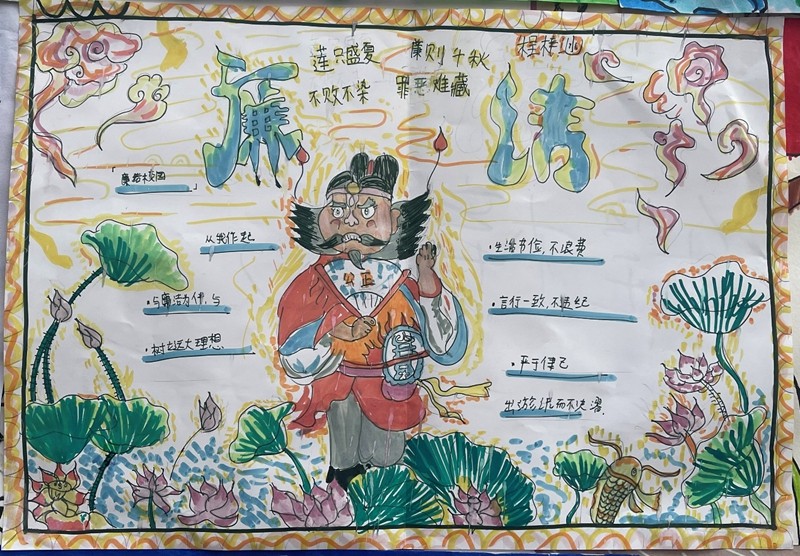 廉清
莲只盛夏 廉则千秋
不败不染 罪恶难藏
「廉洁校园」
从我作起
·与廉洁为伴,与
·树远大理想.
公正
·生活节俭,不浪费
·言行一致,不违纪
·严于律己
出淤泥而不染.